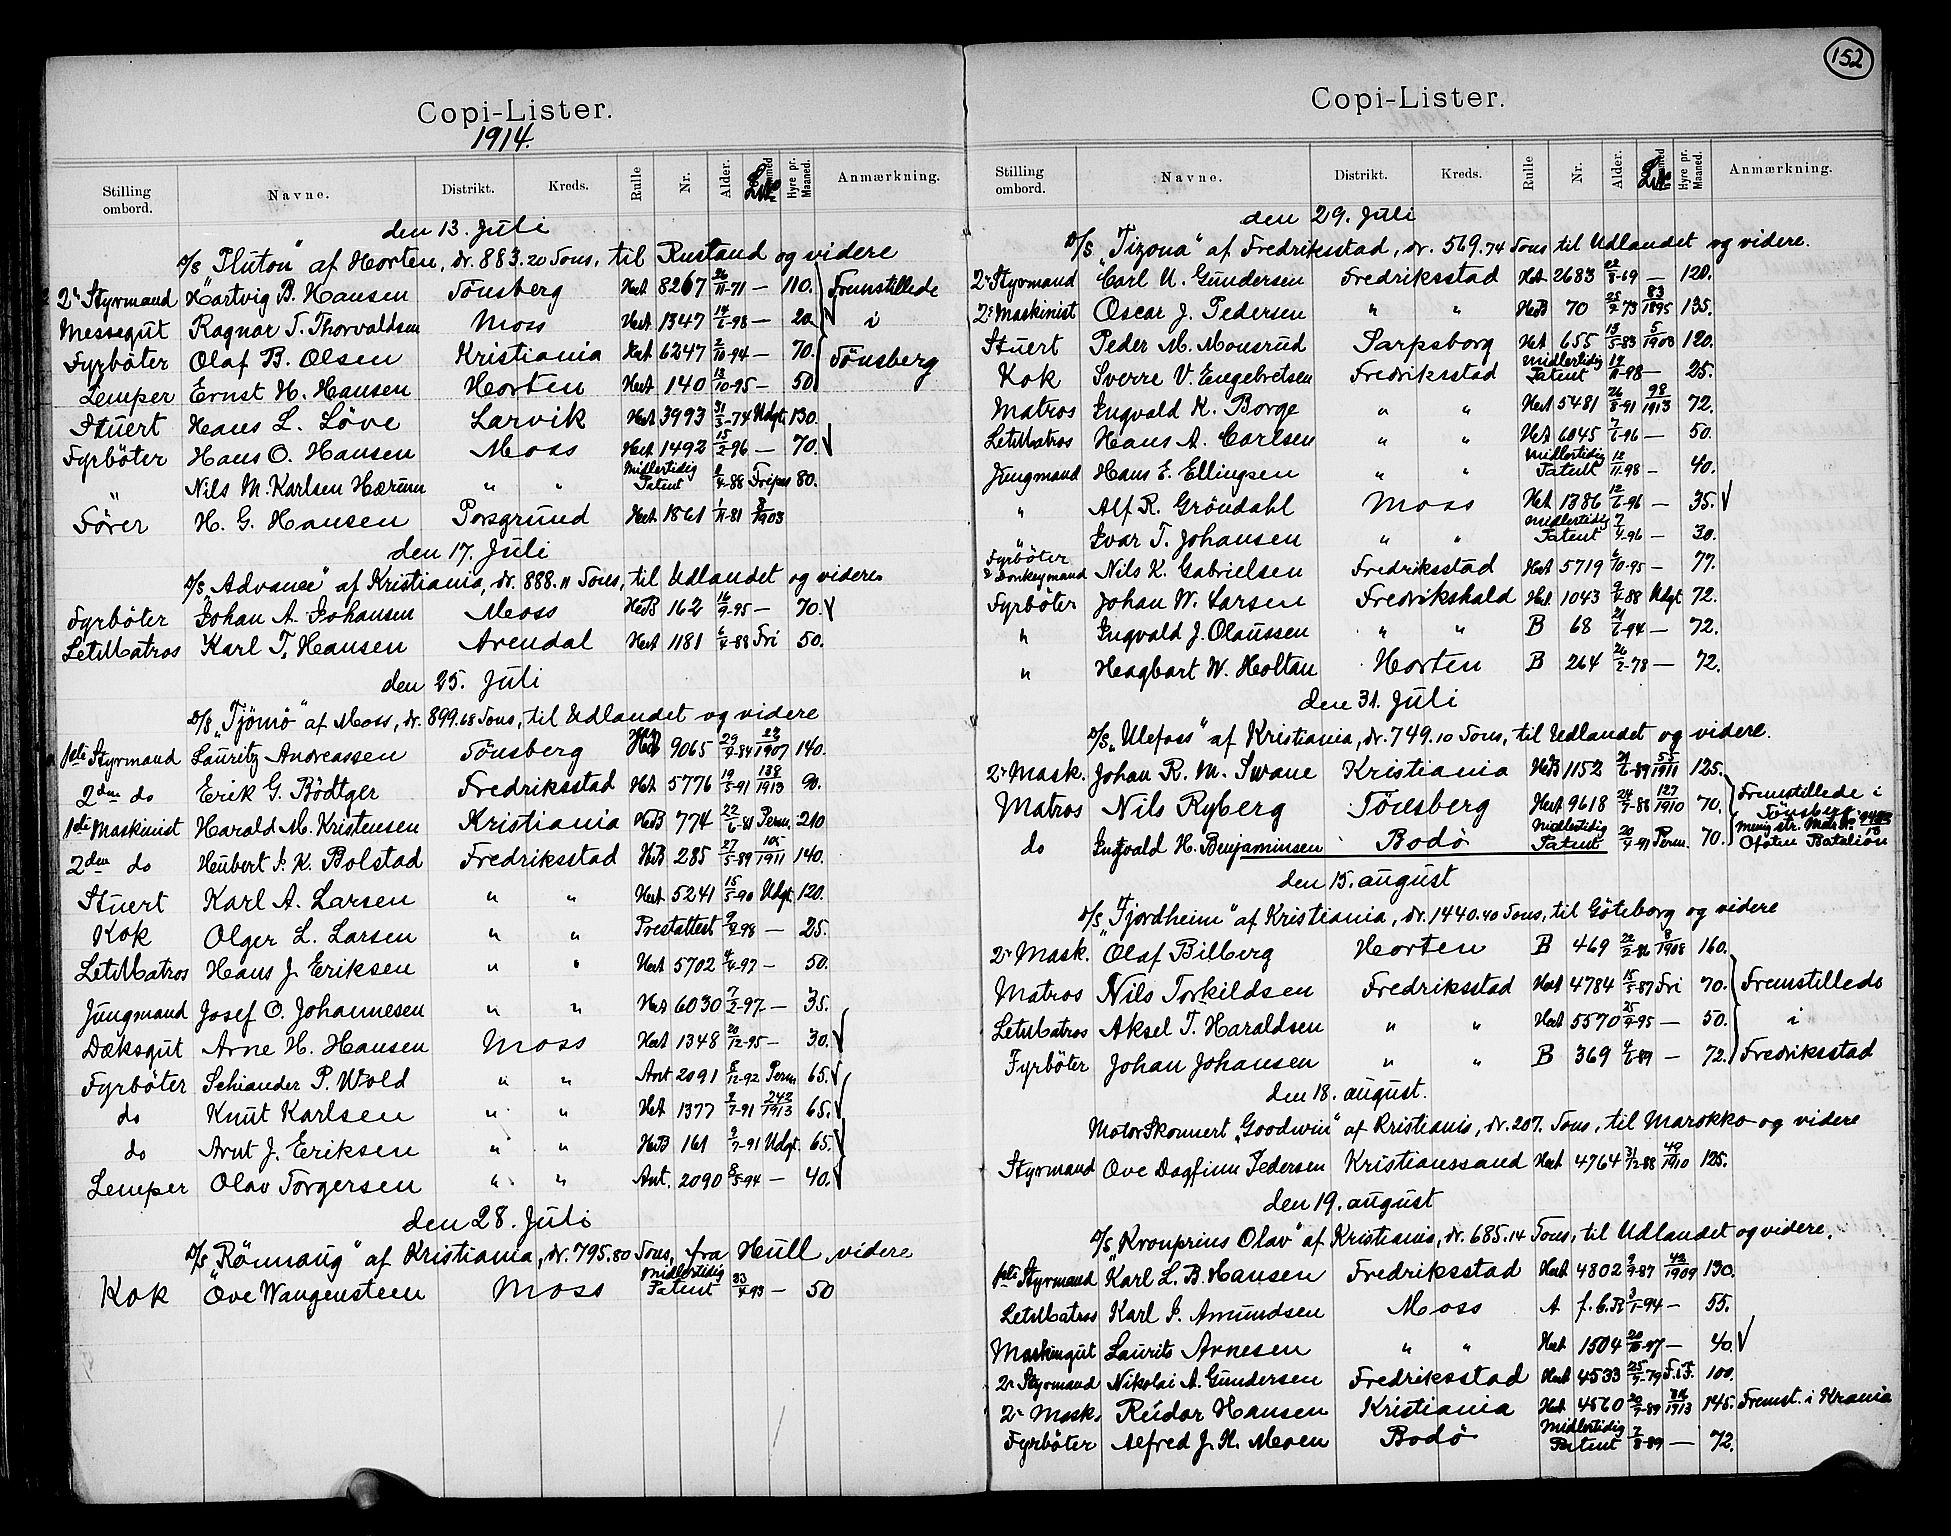 Copi-Lister.
1914.
Stilling ombord. Navne. Distrikt. Kreds. Rulle Nr. Alder. Hyre pr. Maaned. Anmærkning.
den 13. Juli
D/S „Pluton" af Horten, dr. 883.20 Tons, til Rustand og videre
2' Styrmand Hartvig B. Hansen Tönsberg Hovt 8267 26/11-71 — 110. Fremstillede
Messegut Ragnar T. Thorvaldsen Moss Hovt 1347 14/6-98 — 20 i
Fyrböter Olaf B. Olsen Kristiania Hovt 6247 2/10-94 — 70. Tönsberg
Lemper Ernst H. Hansen Horten Hovt 140 13/10-95 — 50
Stuert Hans L. Löve Larvik Hovt 3993 31/3-74 Udgt 130.
Fyrböter Hans O. Hansen Moss Hovt 1492 15/2-96 — 70. V
" Nils M. Karlsen Hærum " " Midlertidig Patent 2/4-88 Fripas 80.
Förer H. G. Hansen Porsgrund Hovt 1861 1/11-81 8/1903
den 17. Juli
D/S „Advance" af Kristiania, dr. 888.11 Tons, til Udlandet og videre
Fyrböter Johan A. Johansen Moss HovB 162 16/9-95 — 70. V
LetMatros Karl T. Hansen Arendal Hovt 1181 6/4-88 Fri 50.
den 25. Juli
D/S „Tjömö" af Moss, dr. 899.68 Tons, til Udlandet og videre
1ste Styrmand Lauritz Andreassen Tönsberg 9065 29/9-84 /1907 140.
2den do Erik G. Bödtger Fredriksstad Hovt 5776 19/5-91 138/1913 90.
1ste Maskinist Harald M. Kristensen Kristiania HovB 774 22/6-81 Perm. 210
2den do Heubert J. K. Bolstad Fredriksstad HovB 285 27/5-89 105/1911 140.
Stuert Karl A. Larsen " " Hovt 5241 15/5-90 Udgt. 120.
Kok Olger L. Larsen " " Prestattest 9/2-98 — 25.
LetMatros Hans J. Eriksen " " Hovt 5702 9/4-97 — 50.
Jungmand Josef O. Johannesen " " Hovt 6030 7/2-97 — 35.
Dæksgut Arne H. Hansen Moss Hovt 1348 20/12-95 — 30. V
Fyrböter Schiander P. Wold " " Ant 2091 8/12-92 Perm 65. V
do Knut Karlsen " " Hovt 1377 2/7-91 242/1913 65. V
do Arnt J. Eriksen " " HovB 161 2/7-91 Udgt. 65. V
Lemper Olav Torgersen " " Ant. 2090 8/5-94 — 40. V
den 28. Juli
D/S „Rönnaug" af Kristiania, dr. 795.80 Tons, fra Hull, videre
Kok Ove Wangensteen Moss Midlertidig Patent 23/4-93 — 50
152
Copi-Lister.
Stilling ombord. Navne. Distrikt. Kreds. Rulle Nr. Alder. Hyre pr. Maaned. Anmærkning.
den 29. Juli
D/S „Tizona" af Fredriksstad, dr. 569.74 Tons til Udlandet og videre.
2' Styrmand Carl U. Gundersen Fredriksstad Hovt 2683 22/8-69 — 120.
2' Maskinist Oscar J. Pedersen " " HovB 70 25/7-73 83/1895 135.
Stuert Peder M. Monsrud Sarpsborg Hovt 655 13/5-83 5/1903 120.
Kok Sverre V. Engebretsen Fredriksstad Midlertidig Patent 14/11-98 — 25.
Matros Ingvald K. Borge " " Hovt 5481 26/8-91 98/1913 72.
LetMatros Hans A. Carlsen " " Hovt 6045 7/6-96 — 50.
Jungmand Hans E. Ellingsen " " Midlertidig Patent 12/11-98 — 40.
" Alf R. Gröndahl Moss Hovt 1386 12/6-96 — 35. V
" Ivar T. Johansen " " Midlertidig Patent 7/4-96 — 30.
Fyrböter & Donkeymand Nils K. Gabrielsen Fredriksstad Hovt 5719 6/10-95 — 77.
Fyrböter Johan W. Larsen Fredrikshald Hovt. 1043 9/4-88 Udgt 72.
" Ingvald J. Olaussen " " B 68 21/6-94 — 72.
" Hagbart W. Holtan Horten B 264 26/2-78 — 72.
den 31. Juli
D/S „Ulefoss" af Kristiania, dr. 749.10 Tons, til Udlandet og videre.
2' Mask. Johan R. M. Swane Kristiania HovB 1152 21/6-89 55/1911 125.
Matros Nils Ryberg Tönsberg Hovt 9618 24/7-88 127/1910 70. Fremstillede i Tönsberg
do Ingvald H. Benjaminsen Bodö Midlertidig Patent 20/4-91 Perm. 70. menig str. Matr. No Ofoten Batalion
den 15. august
D/S „Fjordheim" af Kristiania, dr. 1440.40 Tons, til Göteborg og videre
2' Mask. Olaf Bilberg Horten B 469 22/2-86 8/1908 160.
Matros Nils Torkildsen Fredriksstad Hovt 4784 15/5-87 Fri 70. Fremstillede
LetMatros Aksel T. Haraldsen " " Hovt 5570 25/9-95 — 50. i
Fyrböter Johan Johansen " " B 369 4/6-89 — 72. Fredriksstad
den 18. august.
MotorSkonnert „Goodwin" af Kristiania, dr. 207. Tons, til Marokko og videre
Styrmand Ove Dagfinn Pedersen Kristianssand Hovt 4764 31/12-88 49/1910 125.
den 19. august
D/S „Kronprins Olav" af Kristiania, dr. 685.14 Tons, til Udlandet og videre.
1ste Styrmand Karl L. B. Hansen Fredriksstad Hovt 4802 9/9-87 42/1909 130.
LetMatros Karl J. Amundsen Moss A f.C.R 3/1-94 — 55.
Maskingut Laurits Arnesen " " Hovt 1504 20/10-97 — 40. V
2' Styrmand Nikolai A. Gundersen Fredriksstad Hovt 4533 25/9-79 F.i.F. 100.
2' Mask. Reidar Hansen Kristiania Hovt 4560 20/9-89 /1913 145. Fremst. i Krania
Fyrböter Alfred J. H. Moen Bodö Midlertidig Patent 7/8-89 — 72.